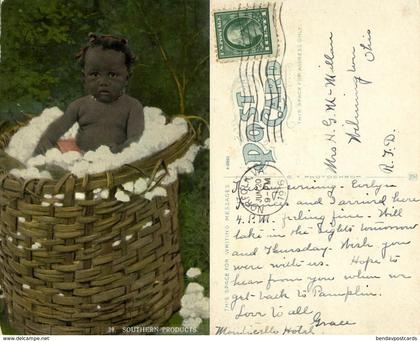 24. SOUTHERN PRODUCTS.
U.S. POSTAGE
POST CARD
THIS SPACE FOR ADDRESS ONLY
Mrs H. G. McMillen
Wilmington
Ohio
R.F.D.
THIS SPACE FOR WRITING MESSAGES
JUN 20
9-PM
1916
morning early
and arrived here
4. P.M. feeling fine. Will
take in the sights tomorrow
and Thursday. Wish you
were with us. Hope to
hear from you when we
get back to Pamplin.
Love to all
Grace
Monticello Hotel.
bendavpostcards.com